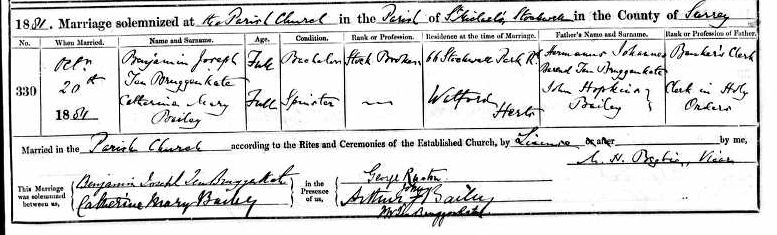 1881. Marriage solemnized at the Parish Church in the Parish of St Michael's Stockwell in the County of Surrey
No. When Married. Name and Surname. Age. Condition. Rank or Profession. Residence at the time of Marriage. Father's Name and Surname. Rank or Profession of Father.
330 20th 1881 Benjamin Joseph Ten Bruggenkate Full Bachelor Stock Broker 66 Stockwell Park Rd Hermanus Johannes Berend Ten Bruggenkate Banker's Clerk
Catherine Mary Bailey Full Spinster — Watford Herts John Hopkins Bailey Clerk in Holy Orders
Married in the Parish Church according to the Rites and Ceremonies of the Established Church, by Licence or after by me,
Vicar
This Marriage was solemnized between us, Benjamin Joseph Ten Bruggenkate
Catherine Mary Bailey
in the Presence of us, George
Arthur J Bailey